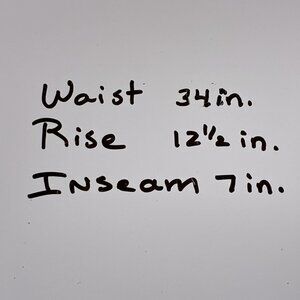 Waist 34in.
Rise 12 1/2 in.
Inseam 7in.